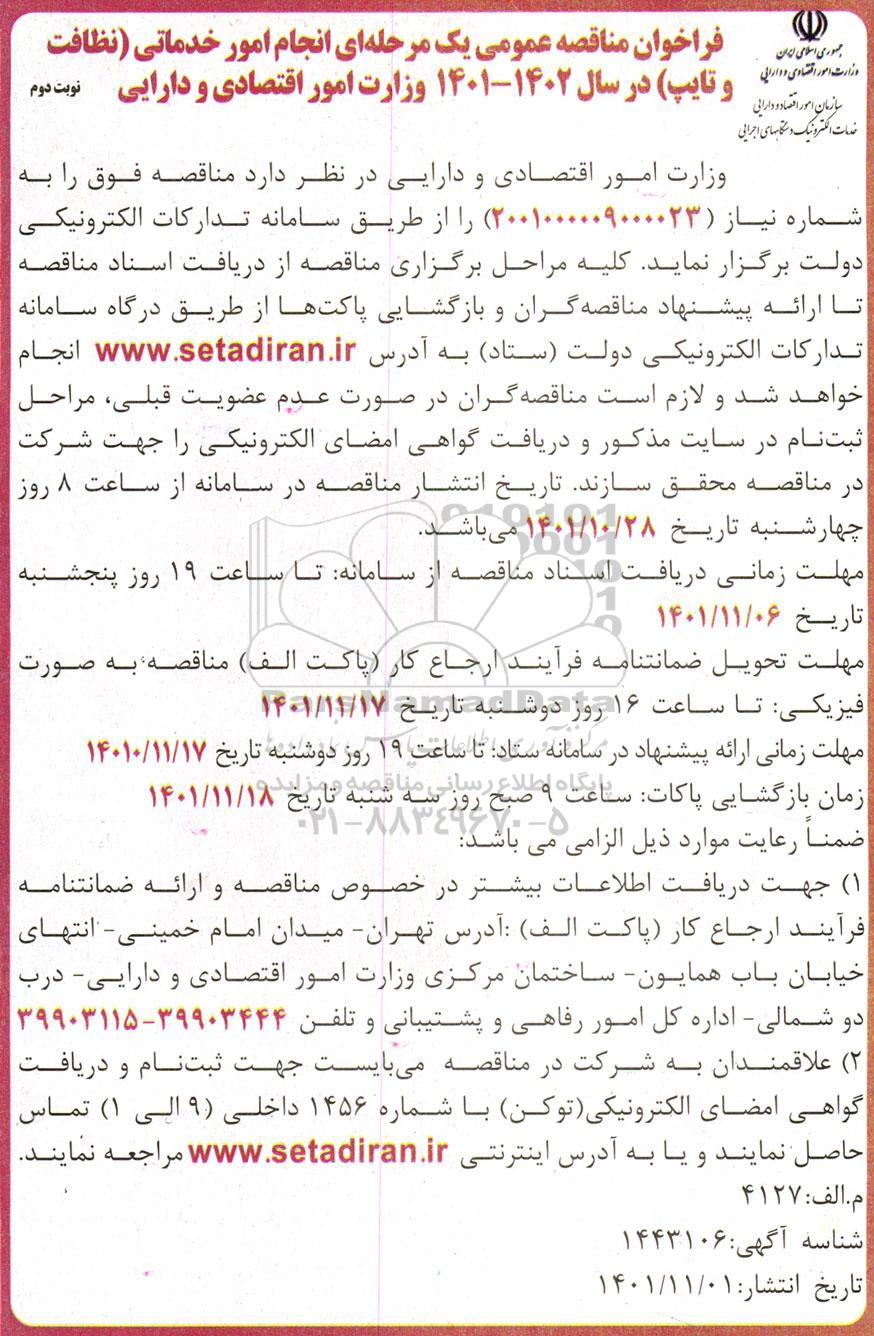 جمهوری اسلامی ایران
وزارت امور اقتصادی و دارایی
سازمان امور اقتصاد و دارایی
خدمات الکترونیک دستگاههای اجرایی
فراخوان مناقصه عمومی یک مرحله‌ای انجام امور خدماتی (نظافت
و تایپ) در سال ۱۴۰۲-۱۴۰۱ وزارت امور اقتصادی و دارایی
نوبت دوم
وزارت امور اقتصادی و دارایی در نظر دارد مناقصه فوق را به
شماره نیاز (۲۰۰۱۰۰۰۰۰۹۰۰۰۰۲۳) را از طریق سامانه تدارکات الکترونیکی
دولت برگزار نماید. کلیه مراحل برگزاری مناقصه از دریافت اسناد مناقصه
تا ارائه پیشنهاد مناقصه‌گران و بازگشایی پاکت‌ها از طریق درگاه سامانه
تدارکات الکترونیکی دولت (ستاد) به آدرس www.setadiran.ir انجام
خواهد شد و لازم است مناقصه‌گران در صورت عدم عضویت قبلی، مراحل
ثبت‌نام در سایت مذکور و دریافت گواهی امضای الکترونیکی را جهت شرکت
در مناقصه محقق سازند. تاریخ انتشار مناقصه در سامانه از ساعت ۸ روز
چهارشنبه تاریخ ۱۴۰۱/۱۰/۲۸ می‌باشد.
مهلت زمانی دریافت اسناد مناقصه از سامانه: تا ساعت ۱۹ روز پنجشنبه
تاریخ ۱۴۰۱/۱۱/۰۶
مهلت تحویل ضمانتنامه فرآیند ارجاع کار (پاکت الف) مناقصه به صورت
فیزیکی: تا ساعت ۱۶ روز دوشنبه تاریخ ۱۴۰۱/۱۱/۱۷
مهلت زمانی ارائه پیشنهاد در سامانه ستاد: تا ساعت ۱۹ روز دوشنبه تاریخ ۱۴۰۱۰/۱۱/۱۷
زمان بازگشایی پاکات: ساعت ۹ صبح روز سه شنبه تاریخ ۱۴۰۱/۱۱/۱۸
ضمناً رعایت موارد ذیل الزامی می باشد:
۱) جهت دریافت اطلاعات بیشتر در خصوص مناقصه و ارائه ضمانتنامه
فرآیند ارجاع کار (پاکت الف) :آدرس تهران- میدان امام خمینی- انتهای
خیابان باب همایون- ساختمان مرکزی وزارت امور اقتصادی و دارایی- درب
دو شمالی- اداره کل امور رفاهی و پشتیبانی و تلفن ۳۹۹۰۳۴۴۴-۳۹۹۰۳۱۱۵
۲) علاقمندان به شرکت در مناقصه می‌بایست جهت ثبت‌نام و دریافت
گواهی امضای الکترونیکی(توکن) با شماره ۱۴۵۶ داخلی (۹ الی ۱) تماس
حاصل نمایند و یا به آدرس اینترنتی www.setadiran.ir مراجعه نمایند.
م.الف:۴۱۲۷
شناسه آگهی:۱۴۴۳۱۰۶
تاریخ انتشار:۱۴۰۱/۱۱/۰۱
ParsNamadData
پایگاه اطلاع رسانی مناقصه و مزایده
۰۲۱-۸۸۳۴۹۶۷۰-۵